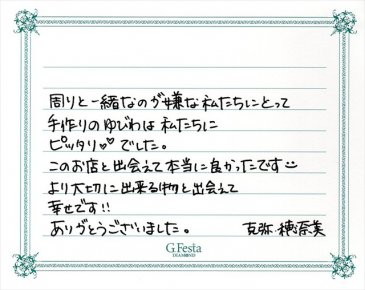 周りと一緒なのが嫌な私たちにとって
手作りのゆびわは私たちに
ピッタリ♡♡でした。
このお店と出会えて本当に良かったです
より大切に出来る物と出会えて
幸せです!!
ありがとうございました。 克弥 穂奈美
G.Festa
DIAMOND